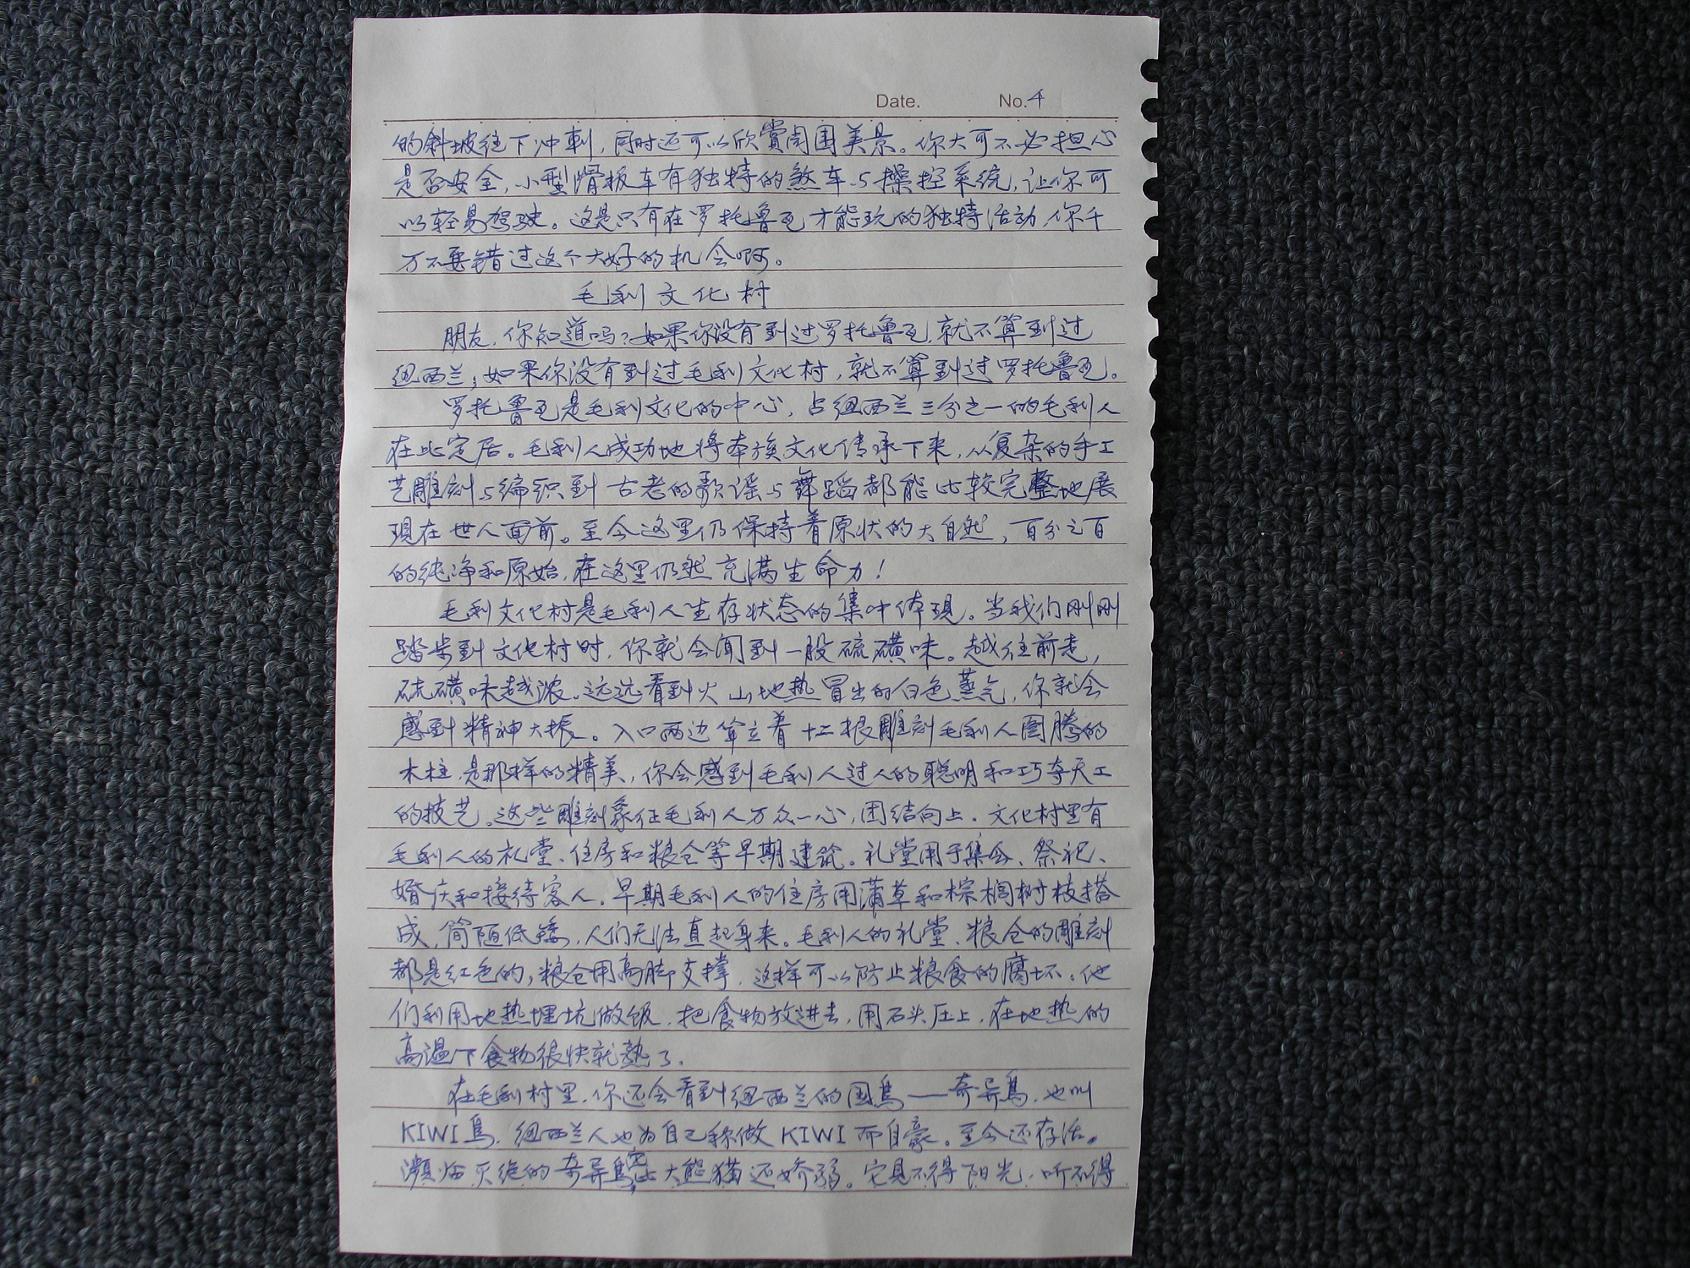 Date. No.4
的斜坡往下冲刺,同时还可以欣赏周围美景。你大可不必担心
是否安全,小型滑板车有独特的煞车与操控系统,让你可
以轻易驾驶。这是只有在罗托鲁瓦才能玩的独特活动,你千
万不要错过这个大好的机会啊。
毛利文化村
朋友,你知道吗?如果你没有到过罗托鲁瓦,就不算到过
纽西兰;如果你没有到过毛利文化村,就不算到过罗托鲁瓦。
罗托鲁瓦是毛利文化的中心,占纽西兰三分之一的毛利人
在此定居。毛利人成功地将本族文化传承下来,从复杂的手工
艺雕刻与编织到古老的歌谣与舞蹈都能比较完整地展
现在世人面前。至今这里仍保持着原状的大自然,百分之百
的纯净和原始,在这里仍然充满生命力!
毛利文化村是毛利人生存状态的集中体现。当我们刚刚
踏步到文化村时,你就会闻到一股硫磺味。越往前走,
硫磺味越浓。远远看到火山地热冒出的白色蒸气,你就会
感到精神大振。入口两边耸立着十二根雕刻毛利人图腾的
木柱,是那样的精美,你会感到毛利人过人的聪明和巧夺天工
的技艺。这些雕刻象征毛利人万众一心,团结向上。文化村里有
毛利人的礼堂、住房和粮仓等早期建筑。礼堂用于集会、祭祀、
婚庆和接待客人。早期毛利人的住房用蒲草和棕榈树枝搭
成,简陋低矮,人们无法直起身来。毛利人的礼堂、粮仓的雕刻
都是红色的,粮仓用高脚支撑,这样可以防止粮食的腐坏。他
们利用地热埋坑做饭,把食物放进去,用石头压上,在地热的
高温下食物很快就熟了。
在毛利村里,你还会看到纽西兰的国鸟——奇异鸟,也叫
KIWI鸟,纽西兰人也为自己称做KIWI而自豪。至今还存活。
濒临灭绝的奇异鸟比大熊猫还娇弱。它见不得阳光,听不得